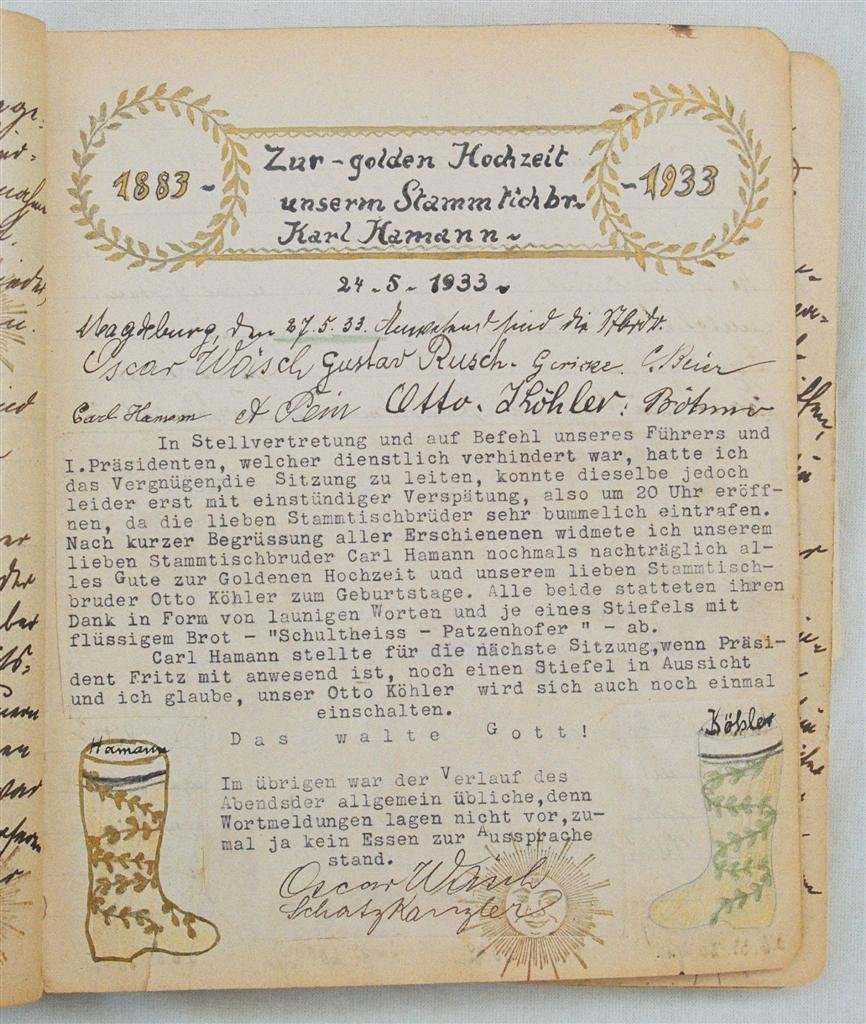 1883 - Zur - golden Hochzeit - 1933
unserm Stammtichbr.
Karl Hamann ~
24. 5. 1933.
Magdeburg, den 27.5.33. Anwesend sind die Stbrdr.
Oscar Wäsch Gustav Rusch. Gericke. C. Beier
Carl Hamann A Pein Otto. Köhler. Böhme
In Stellvertretung und auf Befehl unseres Führers und
I.Präsidenten, welcher dienstlich verhindert war, hatte ich
das Vergnügen,die Sitzung zu leiten, konnte dieselbe jedoch
leider erst mit einstündiger Verspätung, also um 20 Uhr eröff-
nen, da die lieben Stammtischbrüder sehr bummelich eintrafen.
Nach kurzer Begrüssung aller Erschienenen widmete ich unserem
lieben Stammtischbruder Carl Hamann nochmals nachträglich al-
les Gute zur Goldenen Hochzeit und unserem lieben Stammtisch-
bruder Otto Köhler zum Geburtstage. Alle beide statteten ihren
Dank in Form von launigen Worten und je eines Stiefels mit
flüssigem Brot - "Schultheiss - Patzenhofer " - ab.
Carl Hamann stellte für die nächste Sitzung,wenn Präsi-
dent Fritz mit anwesend ist, noch einen Stiefel in Aussicht
und ich glaube, unser Otto Köhler wird sich auch noch einmal
einschalten.
D a s w a l t e G o t t !
Hamann
Köhler
Im übrigen war der Verlauf des
Abendsder allgemein übliche,denn
Wortmeldungen lagen nicht vor,zu-
mal ja kein Essen zur Aussprache
stand.
Oscar Wäsch
Schatzkanzler